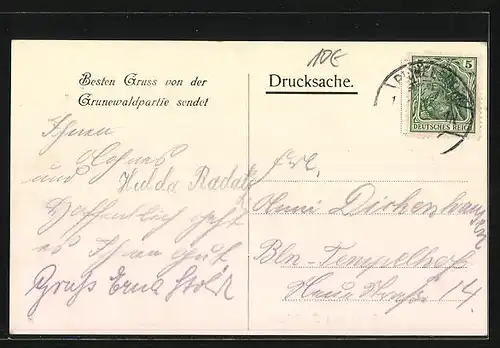 10€
Besten Gruss von der
Grunewaldpartie sendet
Drucksache.
5
DEUTSCHES REICH
Ihnen
und Hulda Radatz
Hoffentlich geht
es Ihnen gut
Gruß Erna
Frl.
Bln-Tempelhof
14